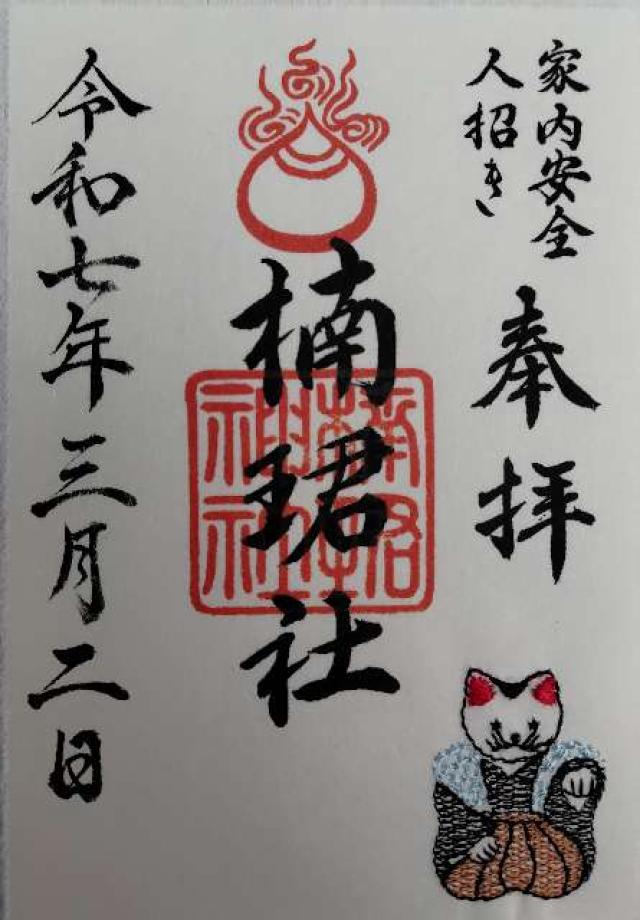 家内安全
人招き
奉拝
楠珺社
令和七年三月二日